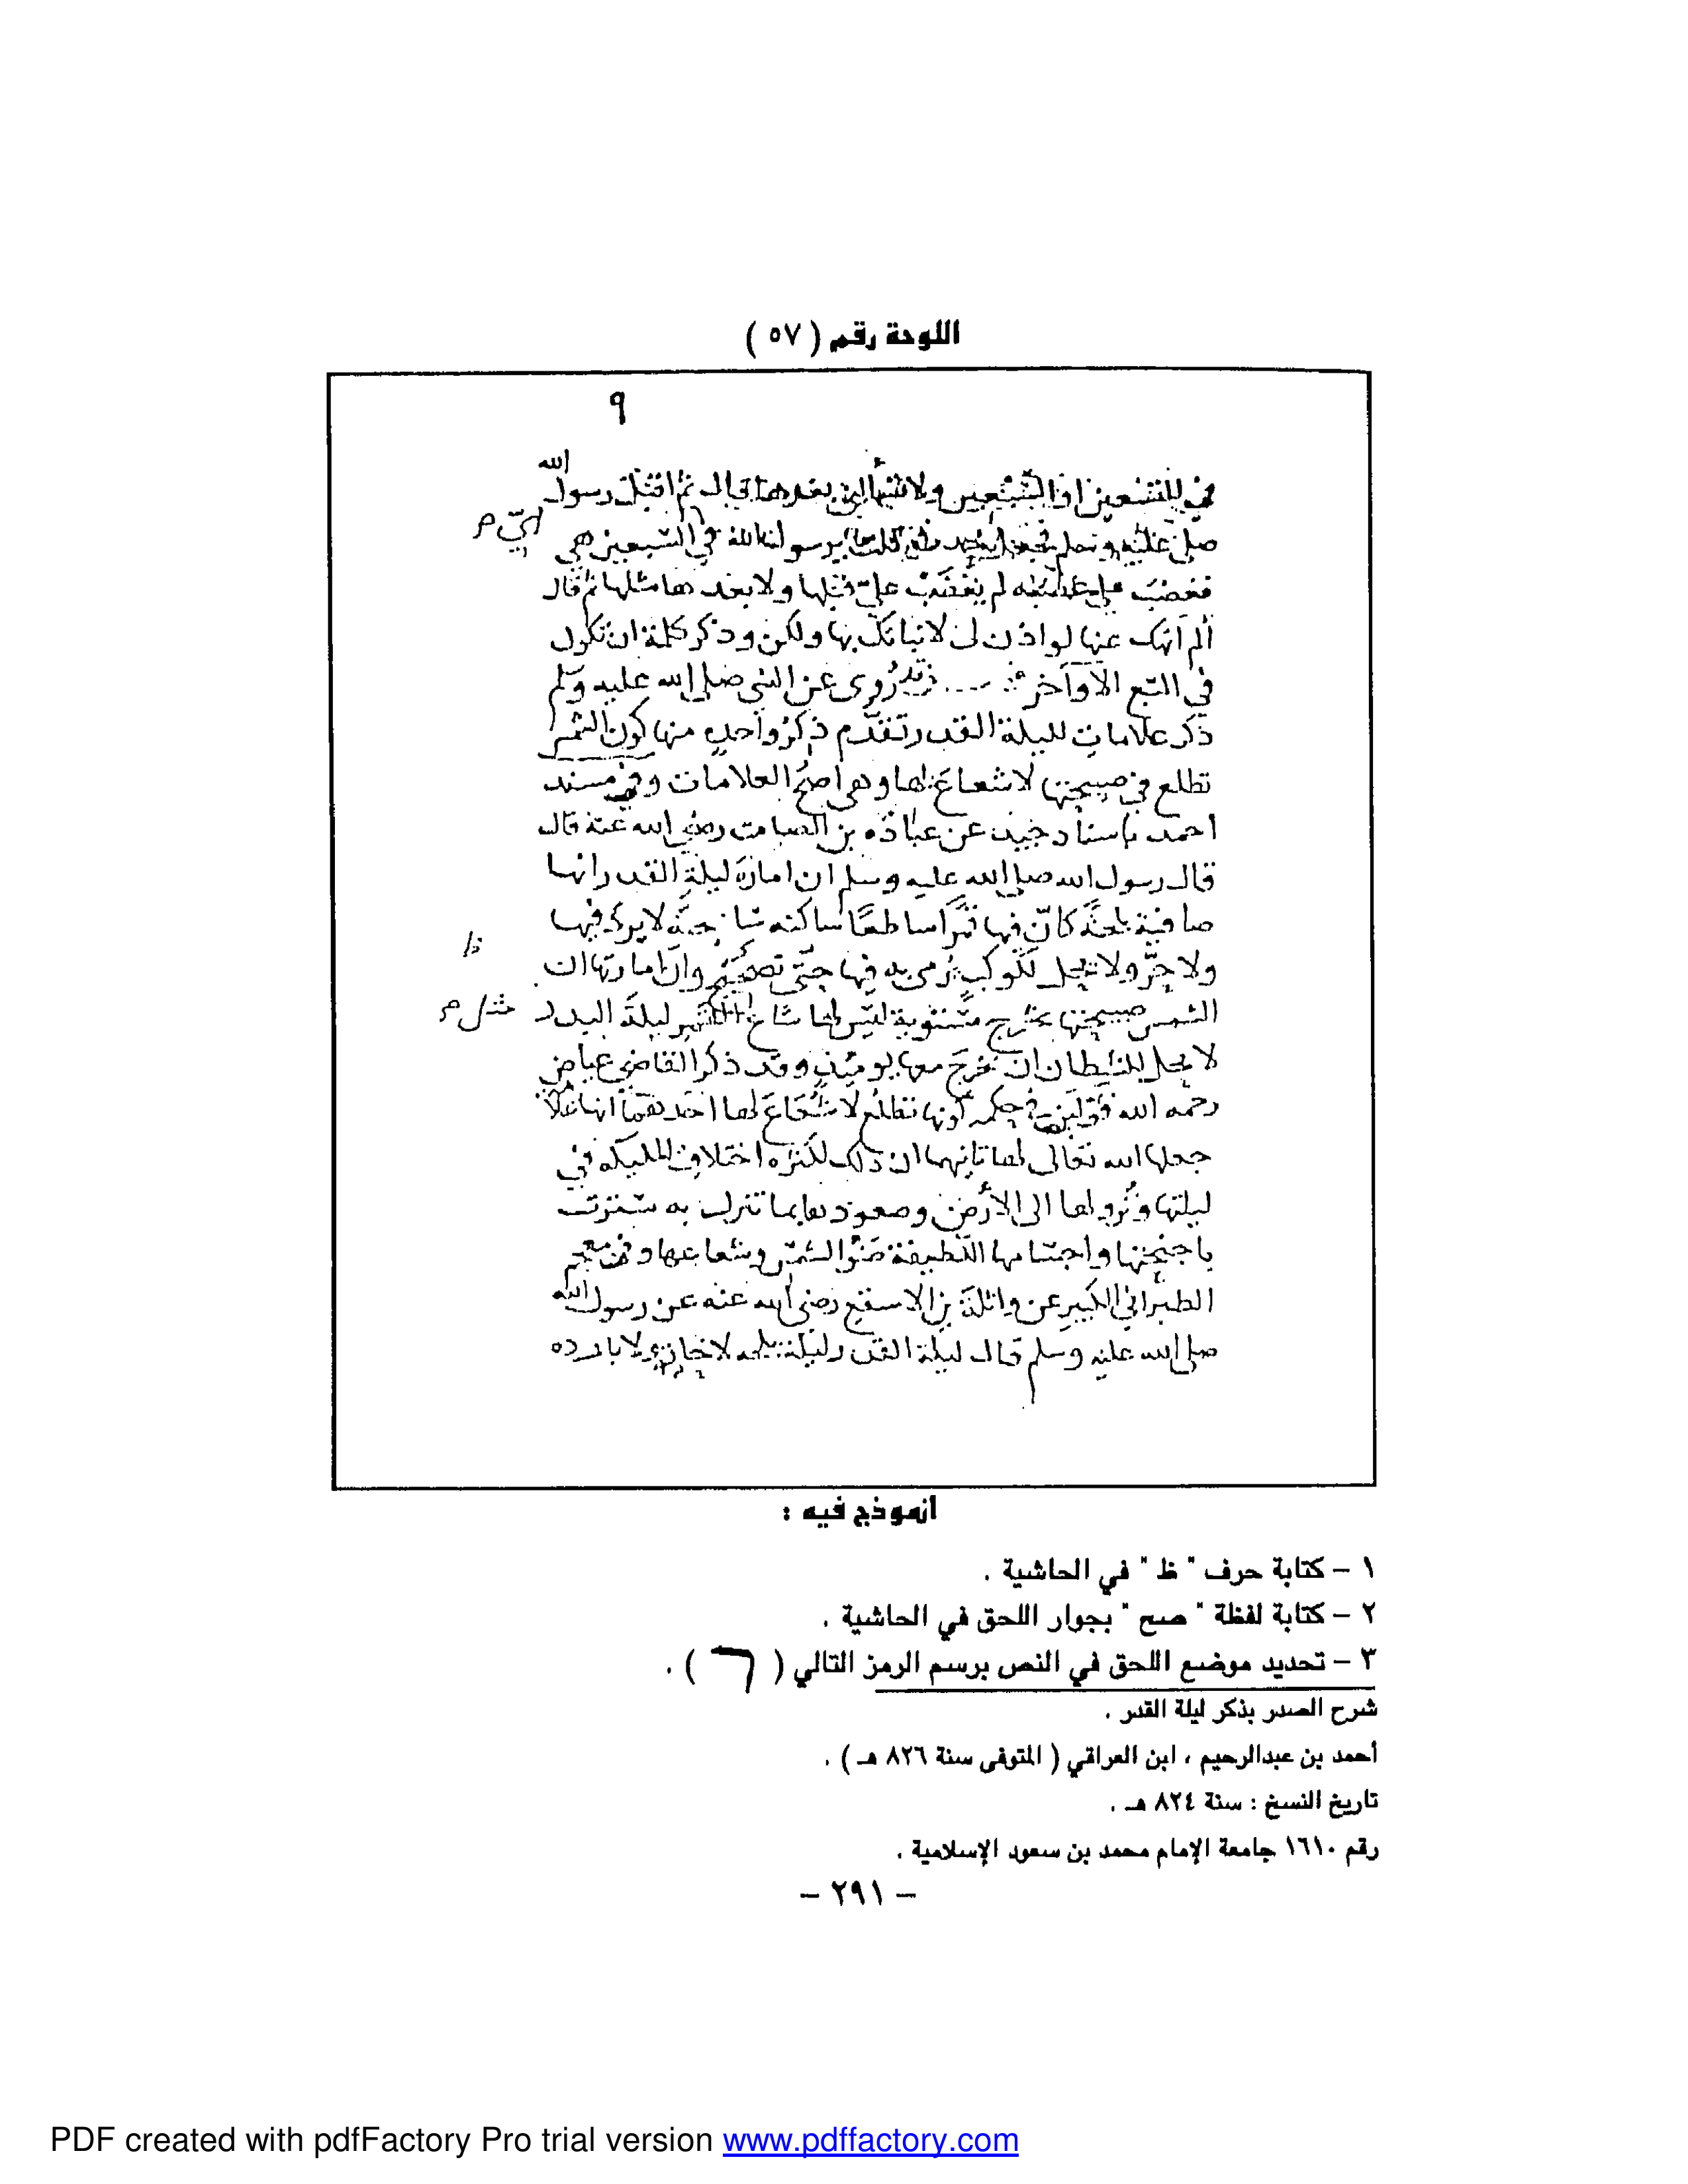 اللوحة رقم ( ٥٧ )
٩
ولا بعدها قال ثم اقبل رسول الله
في السبعين هي
فغضب علي لم يغضب علي قبلها ولا بعدها مثلها ثم قال
ألم أنهك عنها لو اذن لي لانبأتك بها ولكن وذكر كلمة ان تكون
في السبع الأواخر روى عن النبي صلى الله عليه وسلم
ذكر علامات لليلة القدر تقدم ذكر واحد منها كون الشمس
تطلع في صبيحتها لا شعاع لها وهو اصح العلامات وفي مسند
احمد باسناد جيد عن عبادة بن الصامت رضي الله عنه قال
قال رسول الله صلى الله عليه وسلم ان امارة ليلة القدر انها
صافية بلجة كان فيها قمرا ساطعا ساكنه لا برد فيها
ظ
ولا حر ولا يحل لكوكب يرمى به فيها حتى تصبح وان امارتها ان
الشمس صبيحتها تخرج مستوية ليس لها شعاع القمر ليلة البدر
مثل صح
لا يحل للشيطان ان يخرج معها يومئذ وقد ذكر القاضي عياض
رحمه الله قولين في حكمة كونها تطلع لا شعاع لها احدهما انها علامة
جعلها الله تعالى لها ثانيهما ان ذلك لكثرة اختلاف الملئكة في
ليلتها ونزولها الى الأرض وصعودها بما تنزل به سترت
باجنحتها واجسامها اللطيفة ضوء الشمس وشعاعها وفي معجم
الطبراني الكبير عن واثلة بن الاسقع رضي الله عنه عن رسول الله
صلى الله عليه وسلم قال ليلة القدر ليلة بلجه لا حارة ولا بارده
أنموذج فيه :
١ – كتابة حرف " ظ " في الحاشية .
٢ – كتابة لفظة " صح " بجوار اللحق في الحاشية .
٣ – تحديد موضع اللحق في النص برسم الرمز التالي ( ) .
شرح الصدر بذكر ليلة القدر .
أحمد بن عبدالرحيم ، ابن العراقي ( المتوفى سنة ٨٢٦ هـ ) .
تاريخ النسخ : سنة ٨٢٤ هـ .
رقم ١٦١٠ جامعة الإمام محمد بن سعود الإسلامية .
– ٢٩١ –
PDF created with pdfFactory Pro trial version www.pdffactory.com